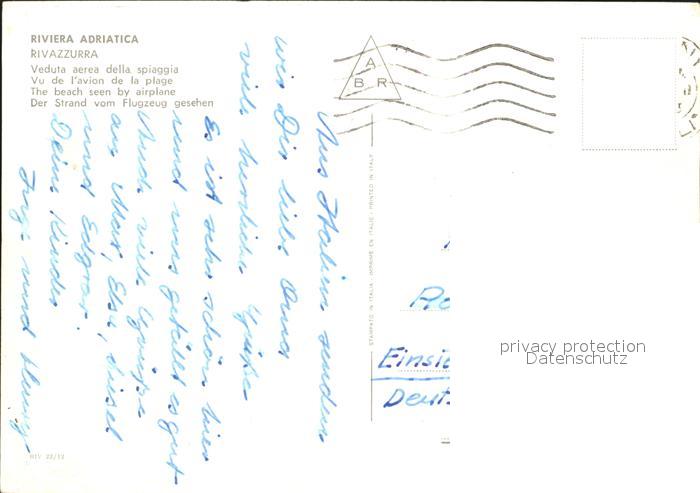 RIVIERA ADRIATICA
RIVAZZURRA
Veduta aerea della spiaggia
Vu de l'avion de la plage
The beach seen by airplane
Der Strand vom Flugzeug gesehen
A
B R
Aus Italien senden
wir Dir liebe Oma
viele herzliche Grüße.
Es ist sehr schön hier
und uns gefällt es gut.
Auch viele Grüße
an Max, Else,
und Edgar.
Deine Kinder
und
STAMPATO IN ITALIA - IMPRIMÉ EN ITALIE - PRINTED IN ITALY
Einsie
Deut
privacy protection
Datenschutz
RIV 22/12